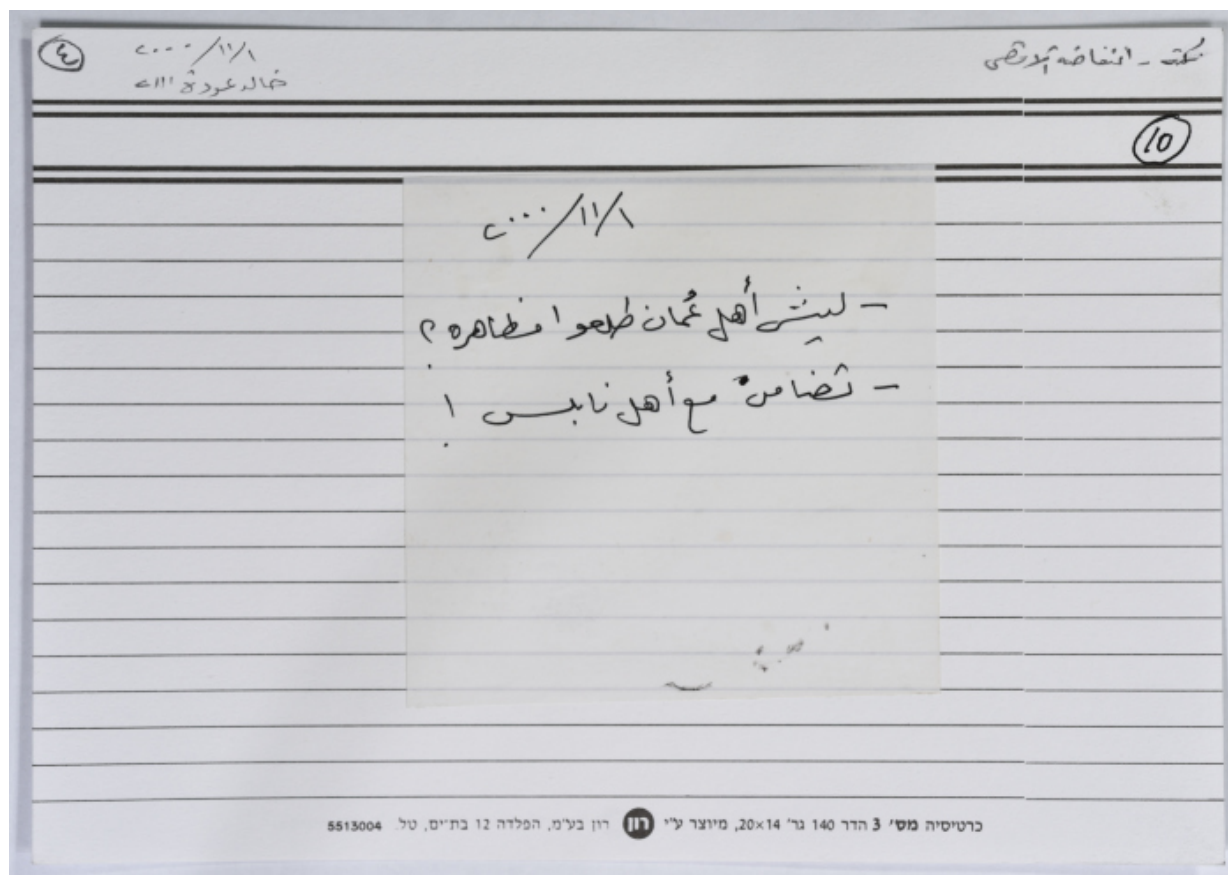 نكته - انتفاضة الاقصى
٢٠٠٠/١١/١
٤
خالد عودة
10
٢٠٠٠/١١/١
- ليش أهل عُمان طلعوا مظاهره؟
- تضامن مع أهل نابلس!
כרטיסיה מס׳ 3 הדר 140 גר׳ 20×14, מיוצר ע״י רון רון בע״מ, הפלדה 12 בת־ים, טל. 5513004